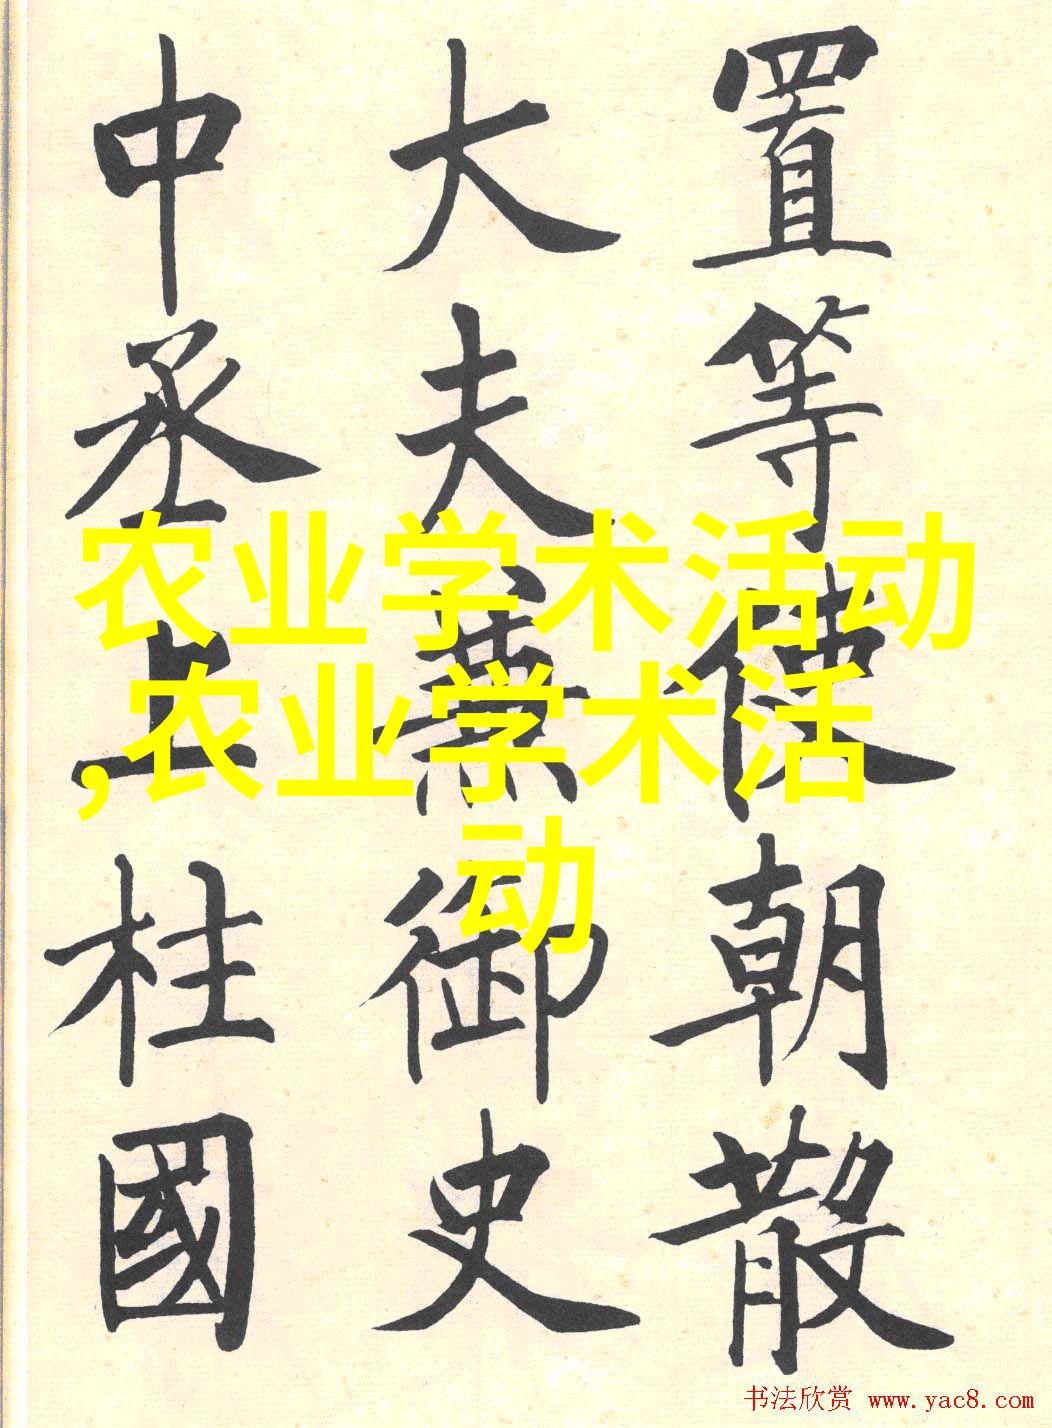 置等使朝散
大夫兼御史
中丞上柱國
农业学术活动
,农业学术活
动
书法欣赏 www.yac8.com